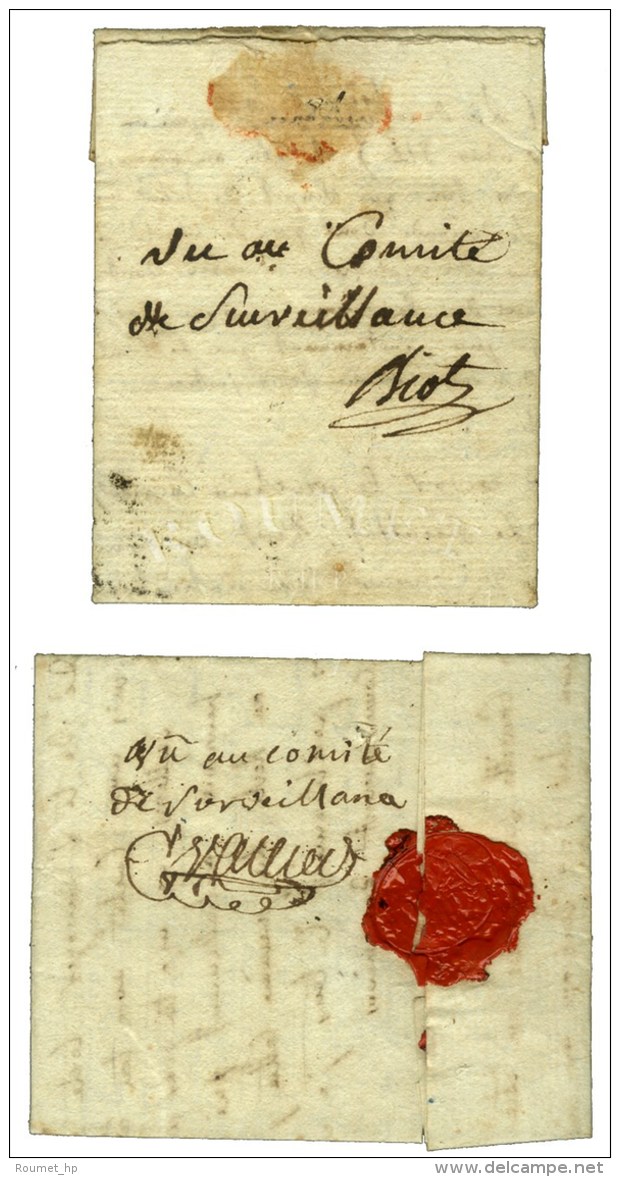 vu au Comité
de Surveillance
Biot
vu au comité
de Surveillance
Roumet_hp
delcampe.net